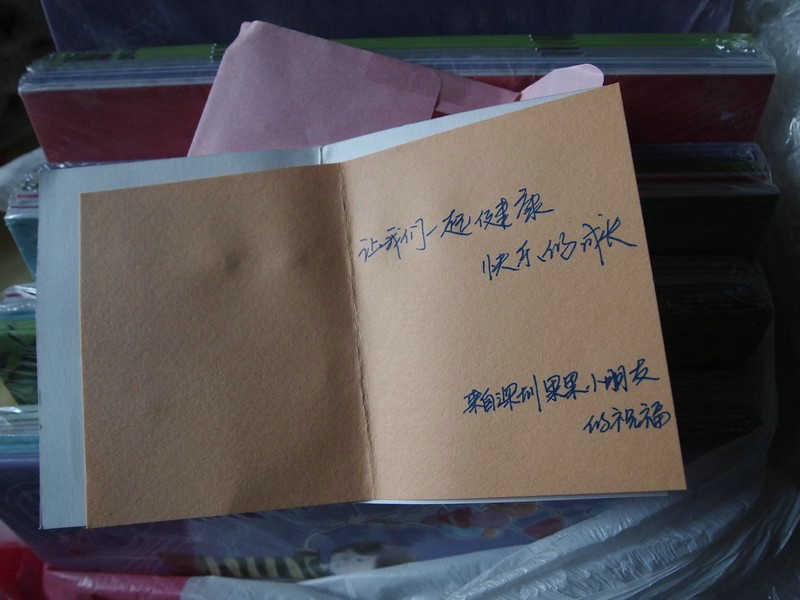 让我们一起健康
快乐的成长
来自深圳果果小朋友
的祝福